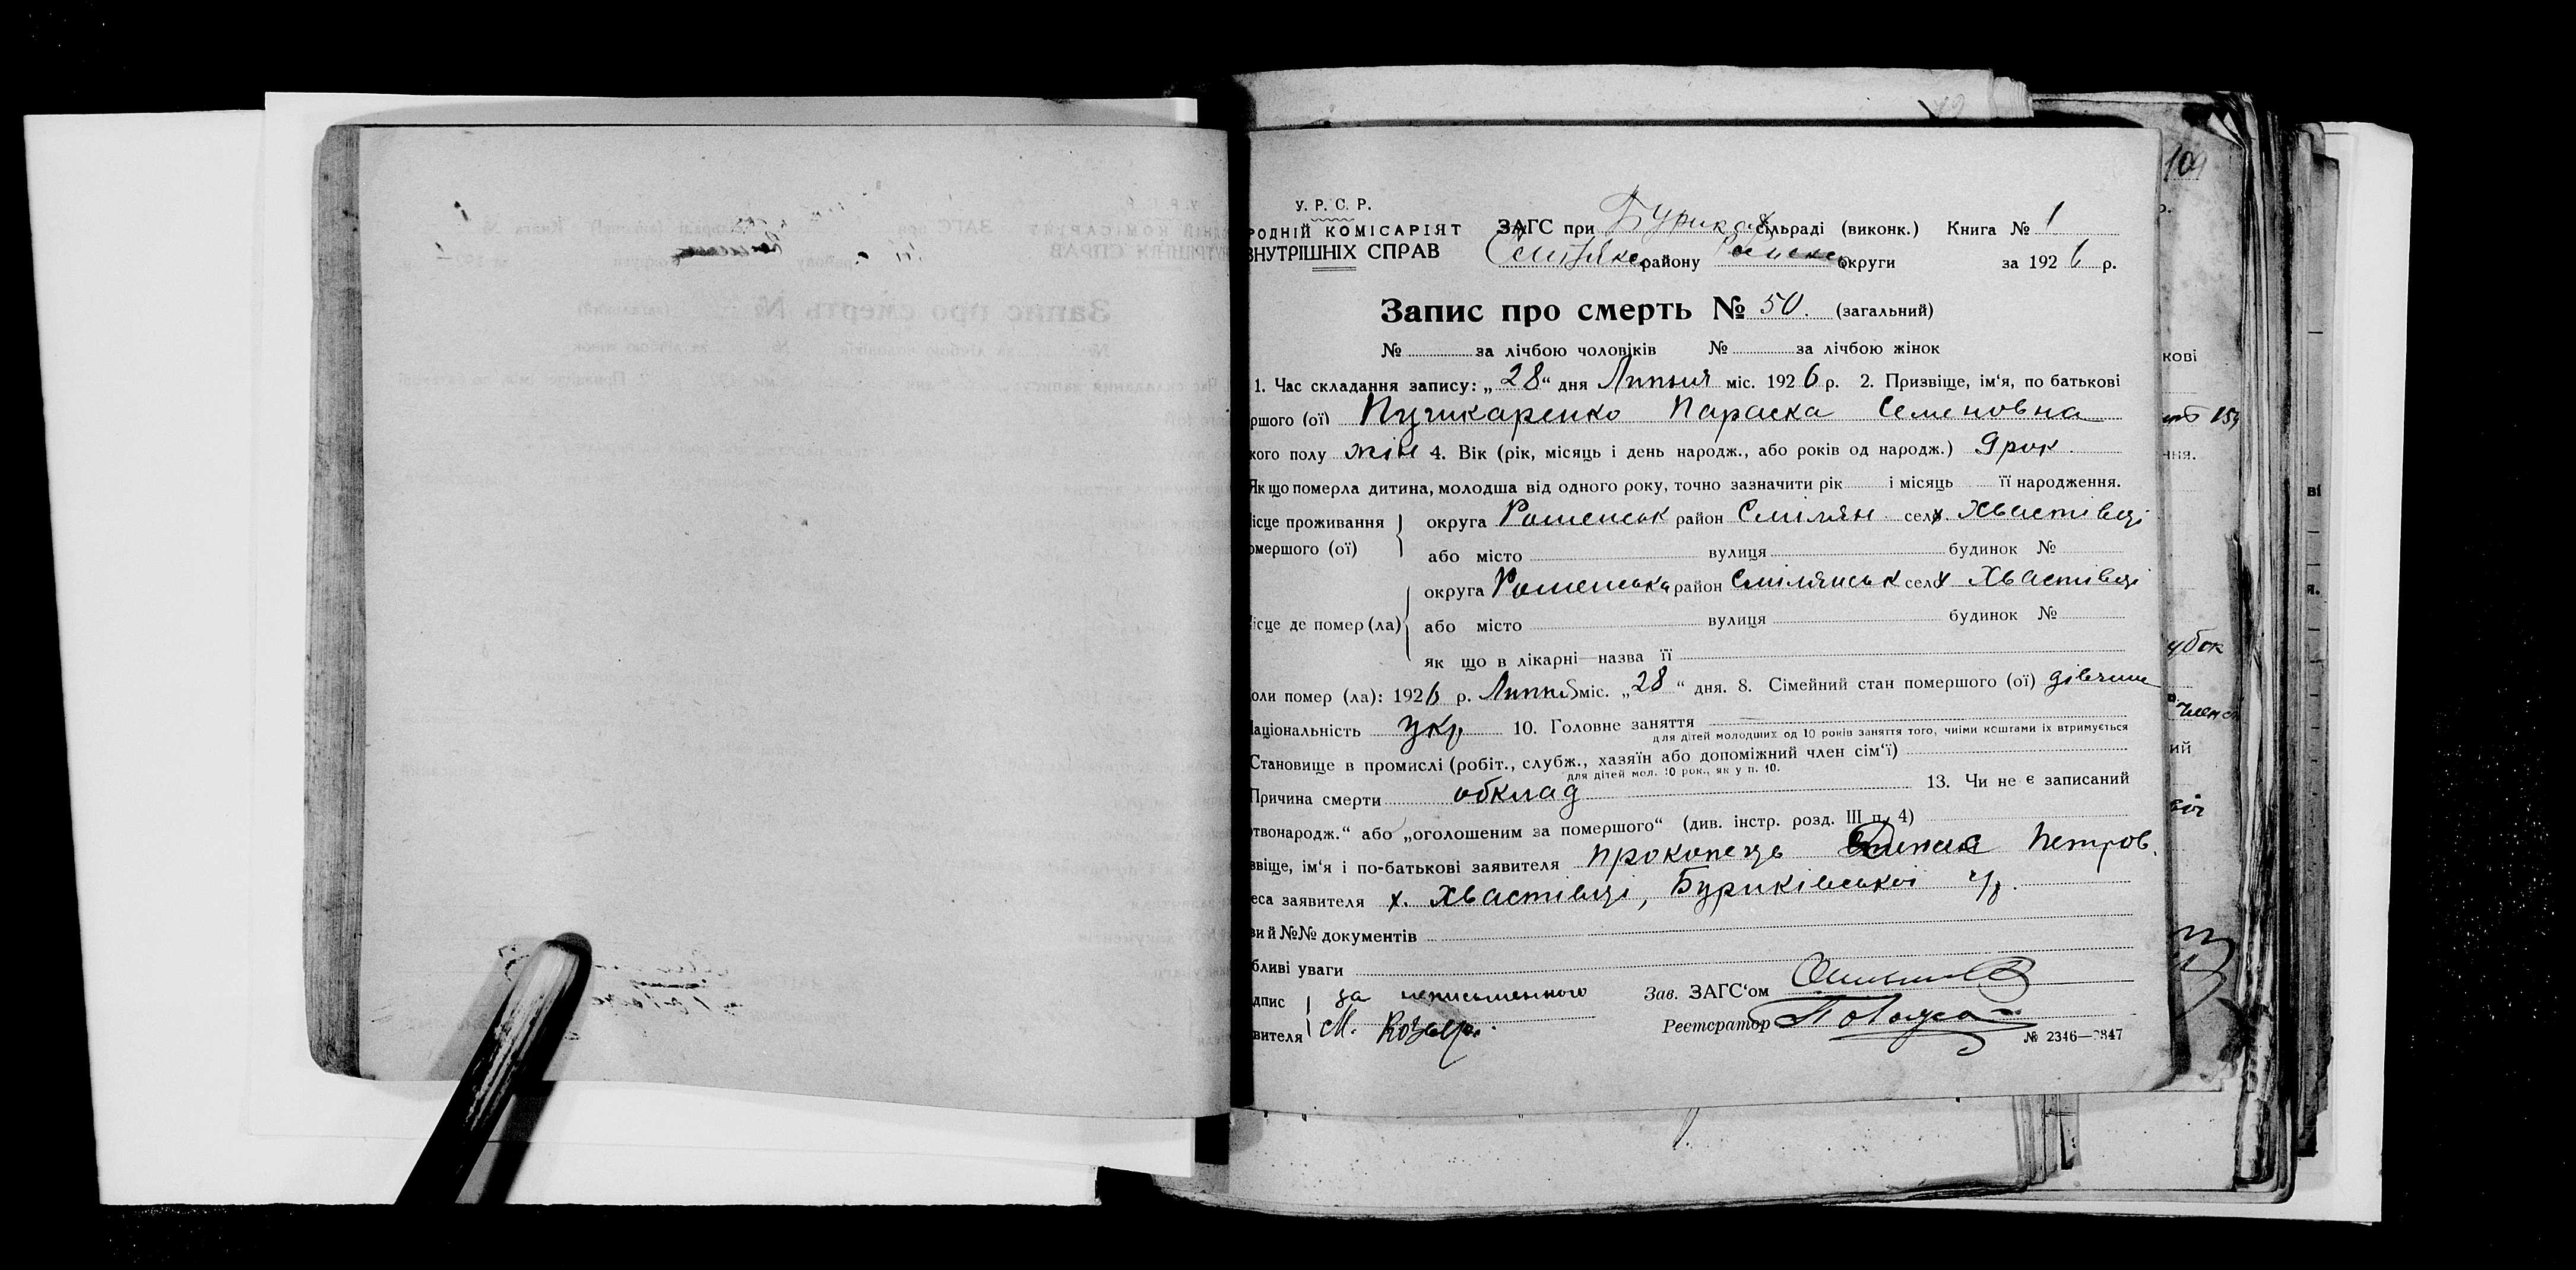 У. Р. С. Р.
РОДНІЙ КОМІСАРІЯТ
ВНУТРІШНІХ СПРАВ
ЗАГС при Бурика сільраді (виконк.) Книга № 1
району округи за 1926 р.
Запис про смерть № 50. (загальний)
№ за лічбою чоловіків № за лічбою жінок
1. Час складання запису: „28“ дня Липня міс. 1926 р. 2. Призвіще, ім‘я, по батькові
ршого (ої) Пушкаренко Параска Семеновна
кого полу жін 4. Вік (рік, місяць і день народж., або років од народж.) 9 рок.
Як що померла дитина, молодша від одного року, точно зазначити рік і місяць її народження.
ісце проживання
омершого (ої)
округа Роменськ район Смілян село х. Хвастівці
або місто вулиця будинок №
ісце де помер (ла)
округа Роменська район Смілянськ село х Хвастівці
або місто вулиця будинок №
як що в лікарні—назва її
оли помер (ла): 1926 р. Липня міс. „28“ дня. 8. Сімейний стан помершого (ої) дівчина
аціональність укр 10. Головне заняття
для дітей молодших од 10 років заняття того, чиїми коштами їх втримується
Становище в промислі (робіт., служб., хазяїн або допоміжний член сім‘ї)
для дітей мол. 10 рок., як у п. 10.
Причина смерти обклад 13. Чи не є записаний
ртвонародж.“ або „оголошеним за помершого“ (див. інстр. розд. III п. 4)
звіще, ім‘я і по-батькові заявителя Прокопець Петров.
еса заявителя х. Хвастівці, Буриківської с/р.
вий №№ документів
бливі уваги
дпис
вителя
за неписьменного
М. Козир.
Зав. ЗАГС‘ом
Реєстратор
№ 2346—2347
109
кові
159
ння.
ий
ві
я.